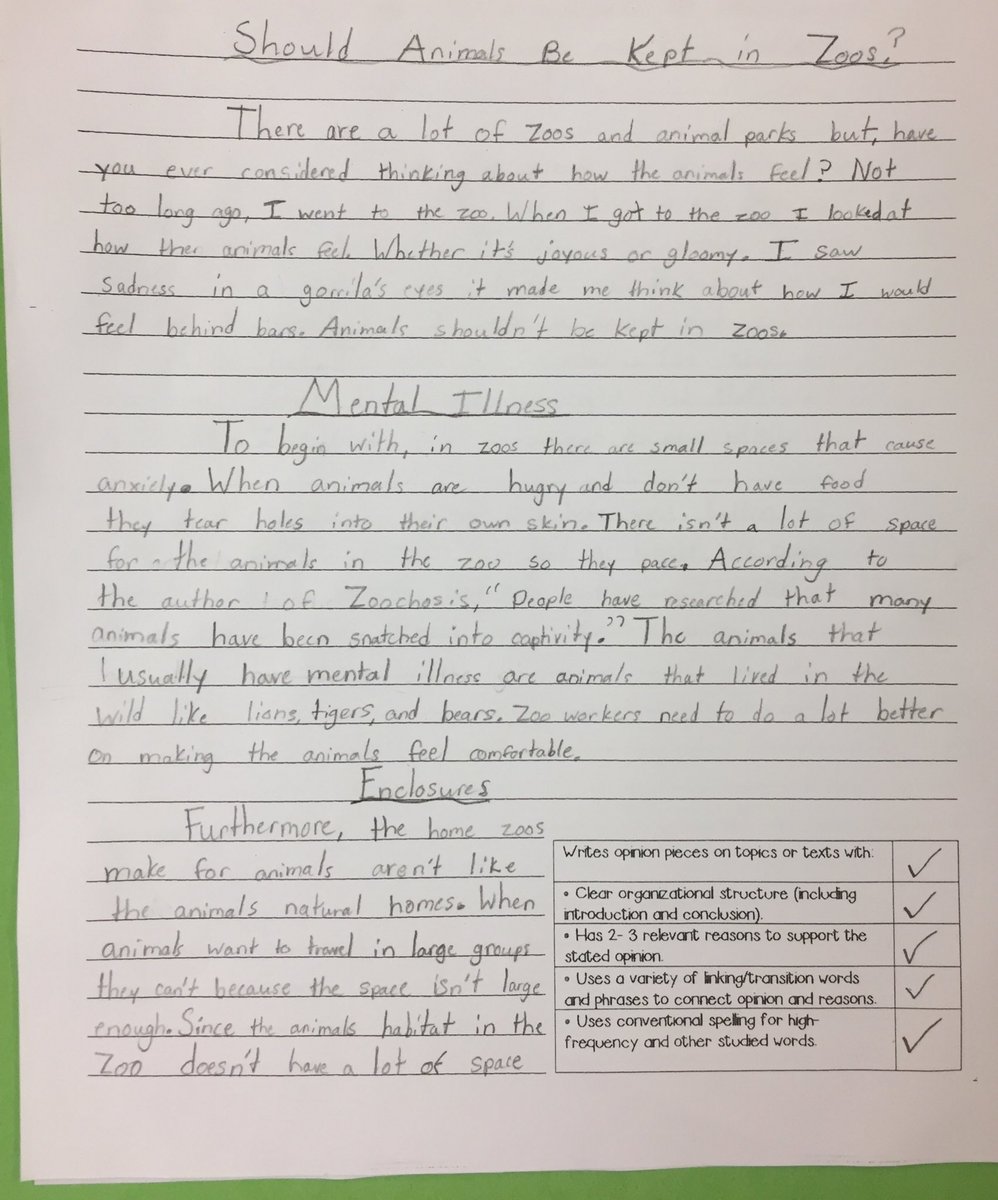 Should Animals Be Kept in Zoos?
There are a lot of zoos and animal parks but, have
you ever considered thinking about how the animals feel? Not
too long ago, I went to the zoo. When I got to the zoo I looked at
how ther animals feel. Whether it's joyous or gloomy. I saw
sadness in a gorrila's eyes it made me think about how I would
feel behind bars. Animals shouldn't be kept in zoos.
Mental Illness
To begin with, in zoos there are small spaces that cause
anxiely. When animals are hugry and don't have food
they tear holes into their own skin. There isn't a lot of space
for the animals in the zoo so they pace. According to
the author of Zoochosis, "People have researched that many
animals have been snatched into captivity." The animals that
usually have mental illness are animals that lived in the
wild like lions, tigers, and bears. Zoo workers need to do a lot better
on making the animals feel comfortable.
Enclosures
Furthermore, the home zoos
make for animals aren't like
the animals natural homes. When
animals want to travel in large groups
they can't because the space isn't large
enough. Since the animals habitat in the
Zoo doesn't have a lot of space
Writes opinion pieces on topics or texts with:
• Clear organizational structure (including
introduction and conclusion).
• Has 2- 3 relevant reasons to support the
stated opinion.
• Uses a variety of linking/transition words
and phrases to connect opinion and reasons.
• Uses conventional spelling for high-
frequency and other studied words.